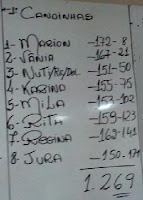 CANOINHAS
1- MARION -172-8
2- VANIA -167-21
3- NUTY/RE/DEL -151-50
4- KARINA -155-75
5- MILA -152-102
6- RITA -159-123
7- REGINA -163-141
8- JURA -150-171
1.269